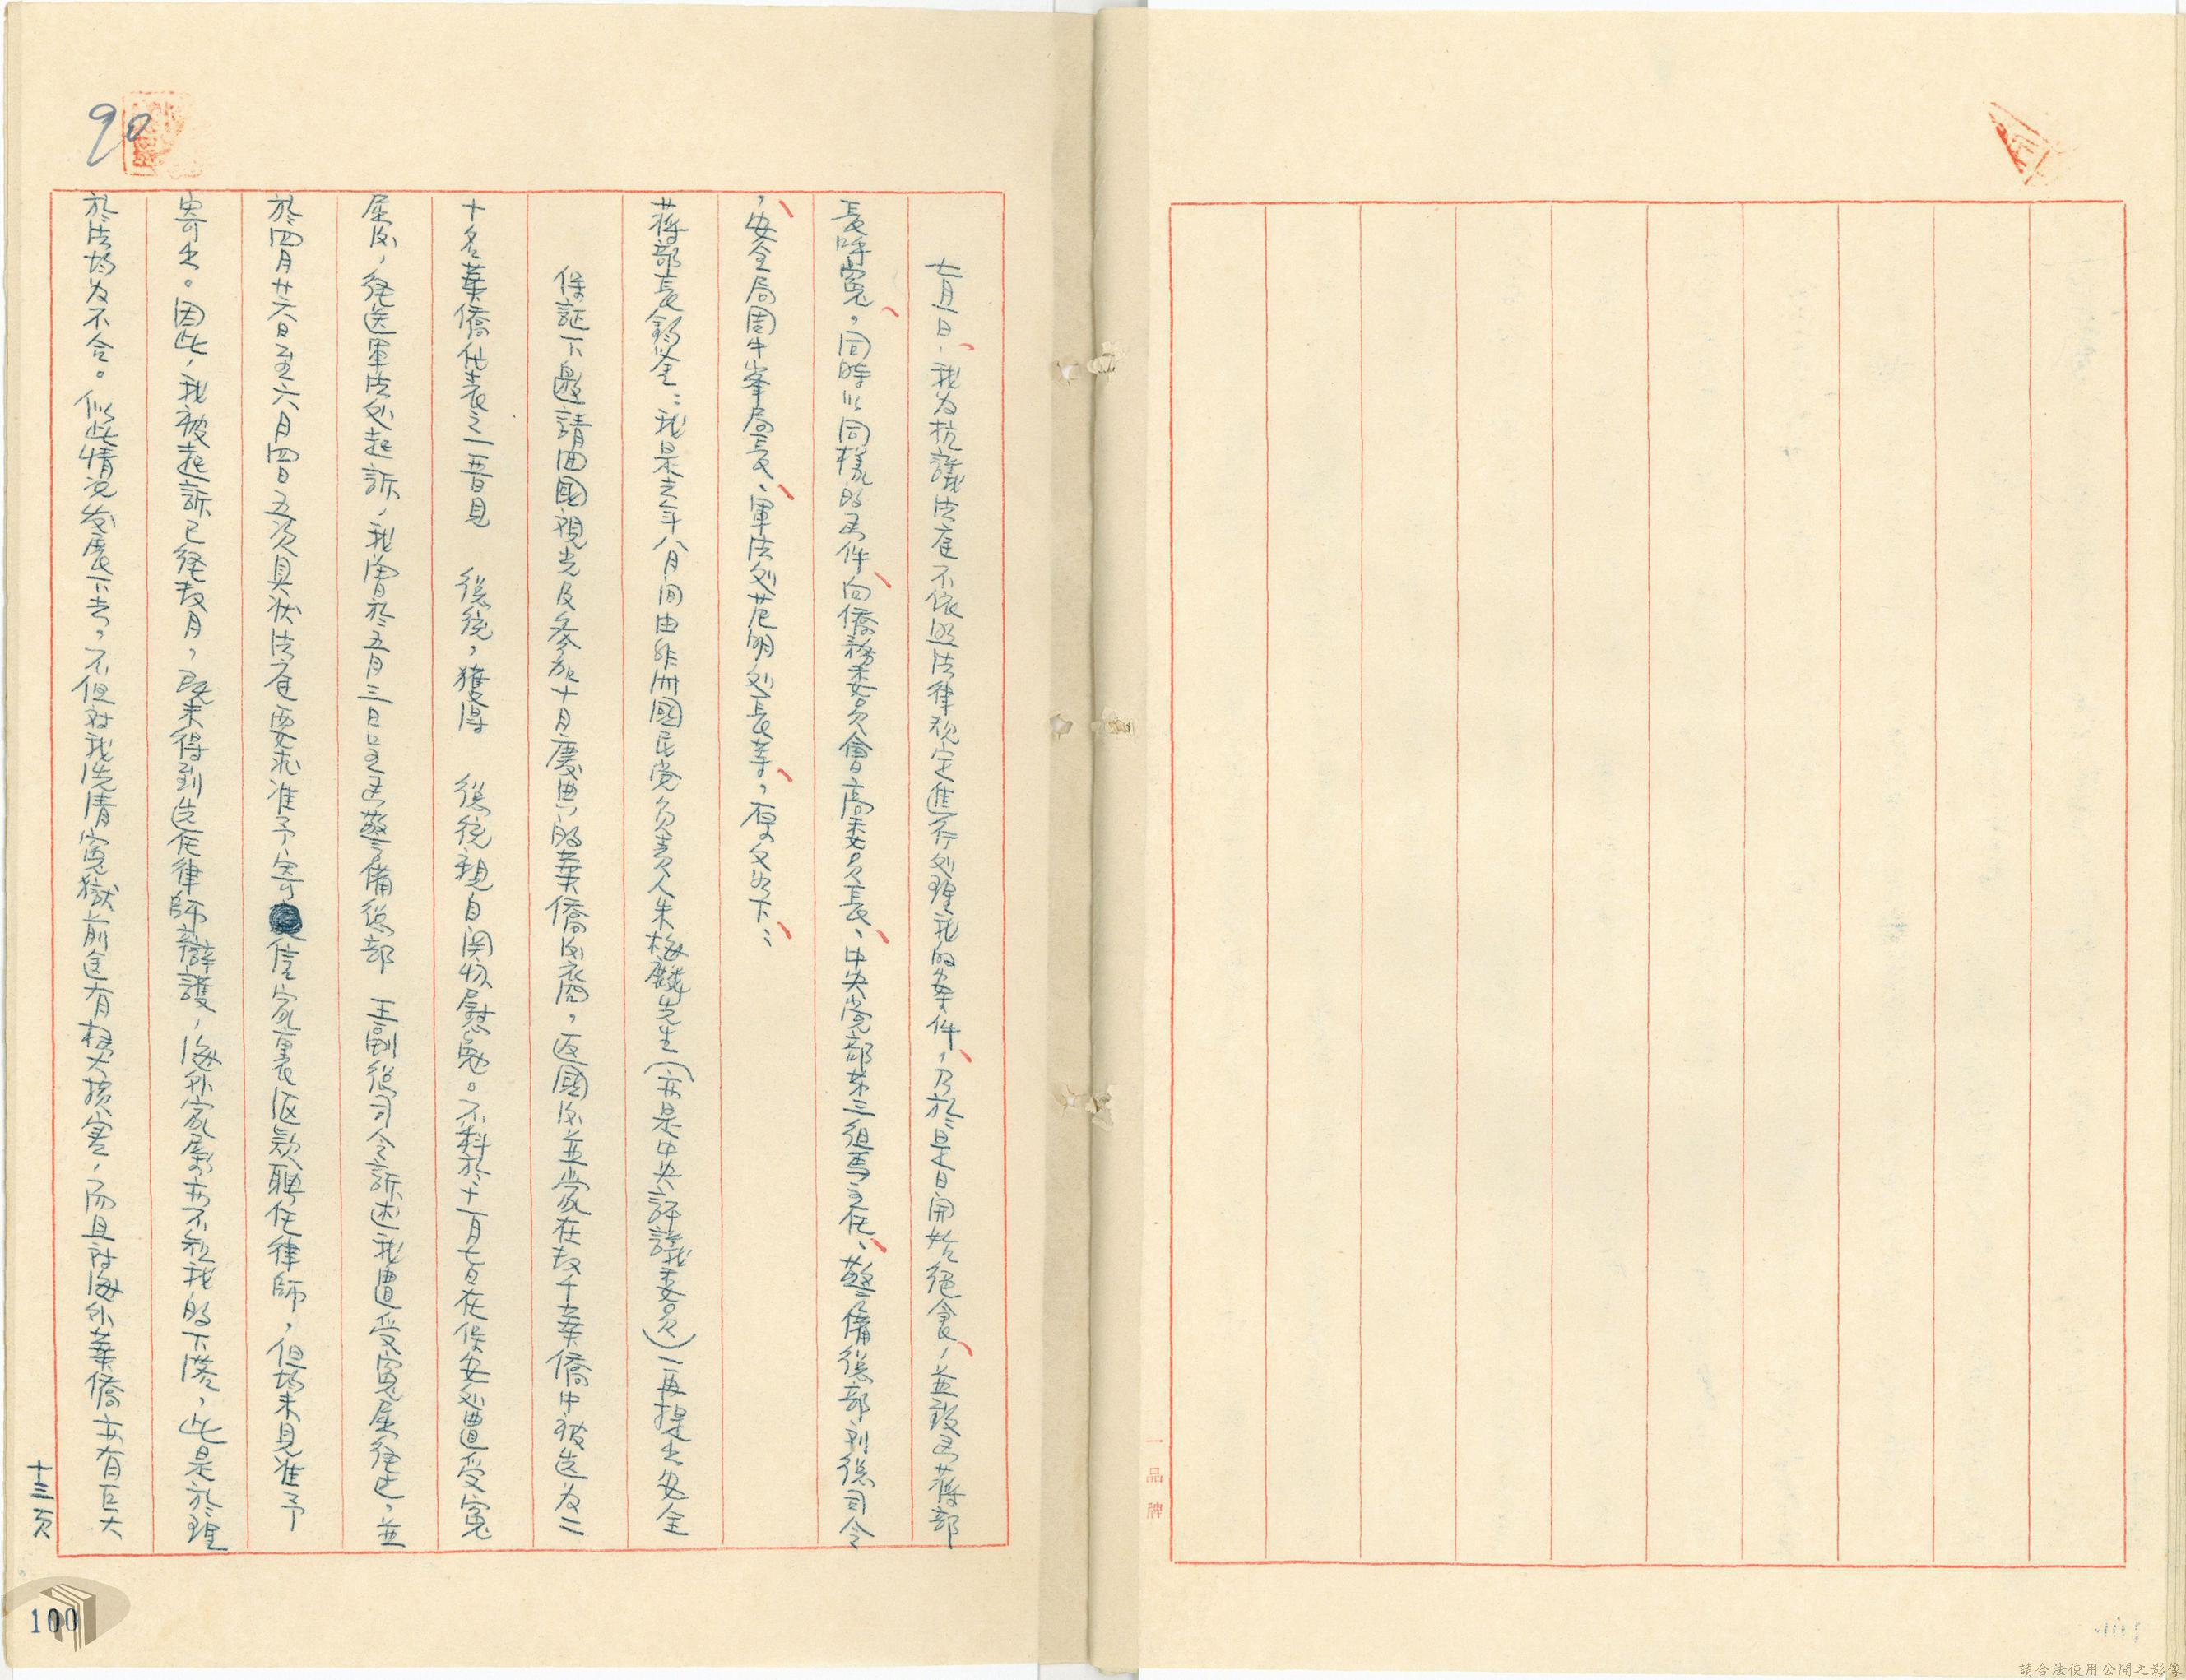 七月一日，我为抗議法庭不依照法律规定進行处理我的案件，乃於是日開始绝食，並致函蔣部
長呼寃，同時以同樣的函件向僑務委員會高委員長、中央党部第三組馬主任、警備總部刘總司令
，安全局周中峯局長、軍法处范明处長等，原文为下：
蔣部長鈞鉴：我是去年八月间由非洲國民党負責人朱梅麟先生（亦是中央評議委員）一再提出安全
保証下邀請回國視光及參加十月慶典的華僑侨商，返國后並蒙在数千華僑中被选为二
十名華僑代表之一晋見　總統，獲得　總統親自関切慰勉。不料於十一月七日在保安处遭受寃
屈后，经送軍法处起訴，我曾於五月三日呈送警備總部　王副總司令訴述我遭受寃屈经过，並
於四月廿六日至六月四日五次具状法庭要求准予寄信家裏汇款聘任律師，但均未見准予
寄出。因此，我被起訴已经数月，既未得到选任律師辯護，海外家屬亦不知我的下落，此是於理
於法均为不合。似此情况发展下去，不但对我洗清寃獄前途有极大损害，而且对海外華僑亦有巨大
十三页
90
100
一品牌
請合法使用公開之影像